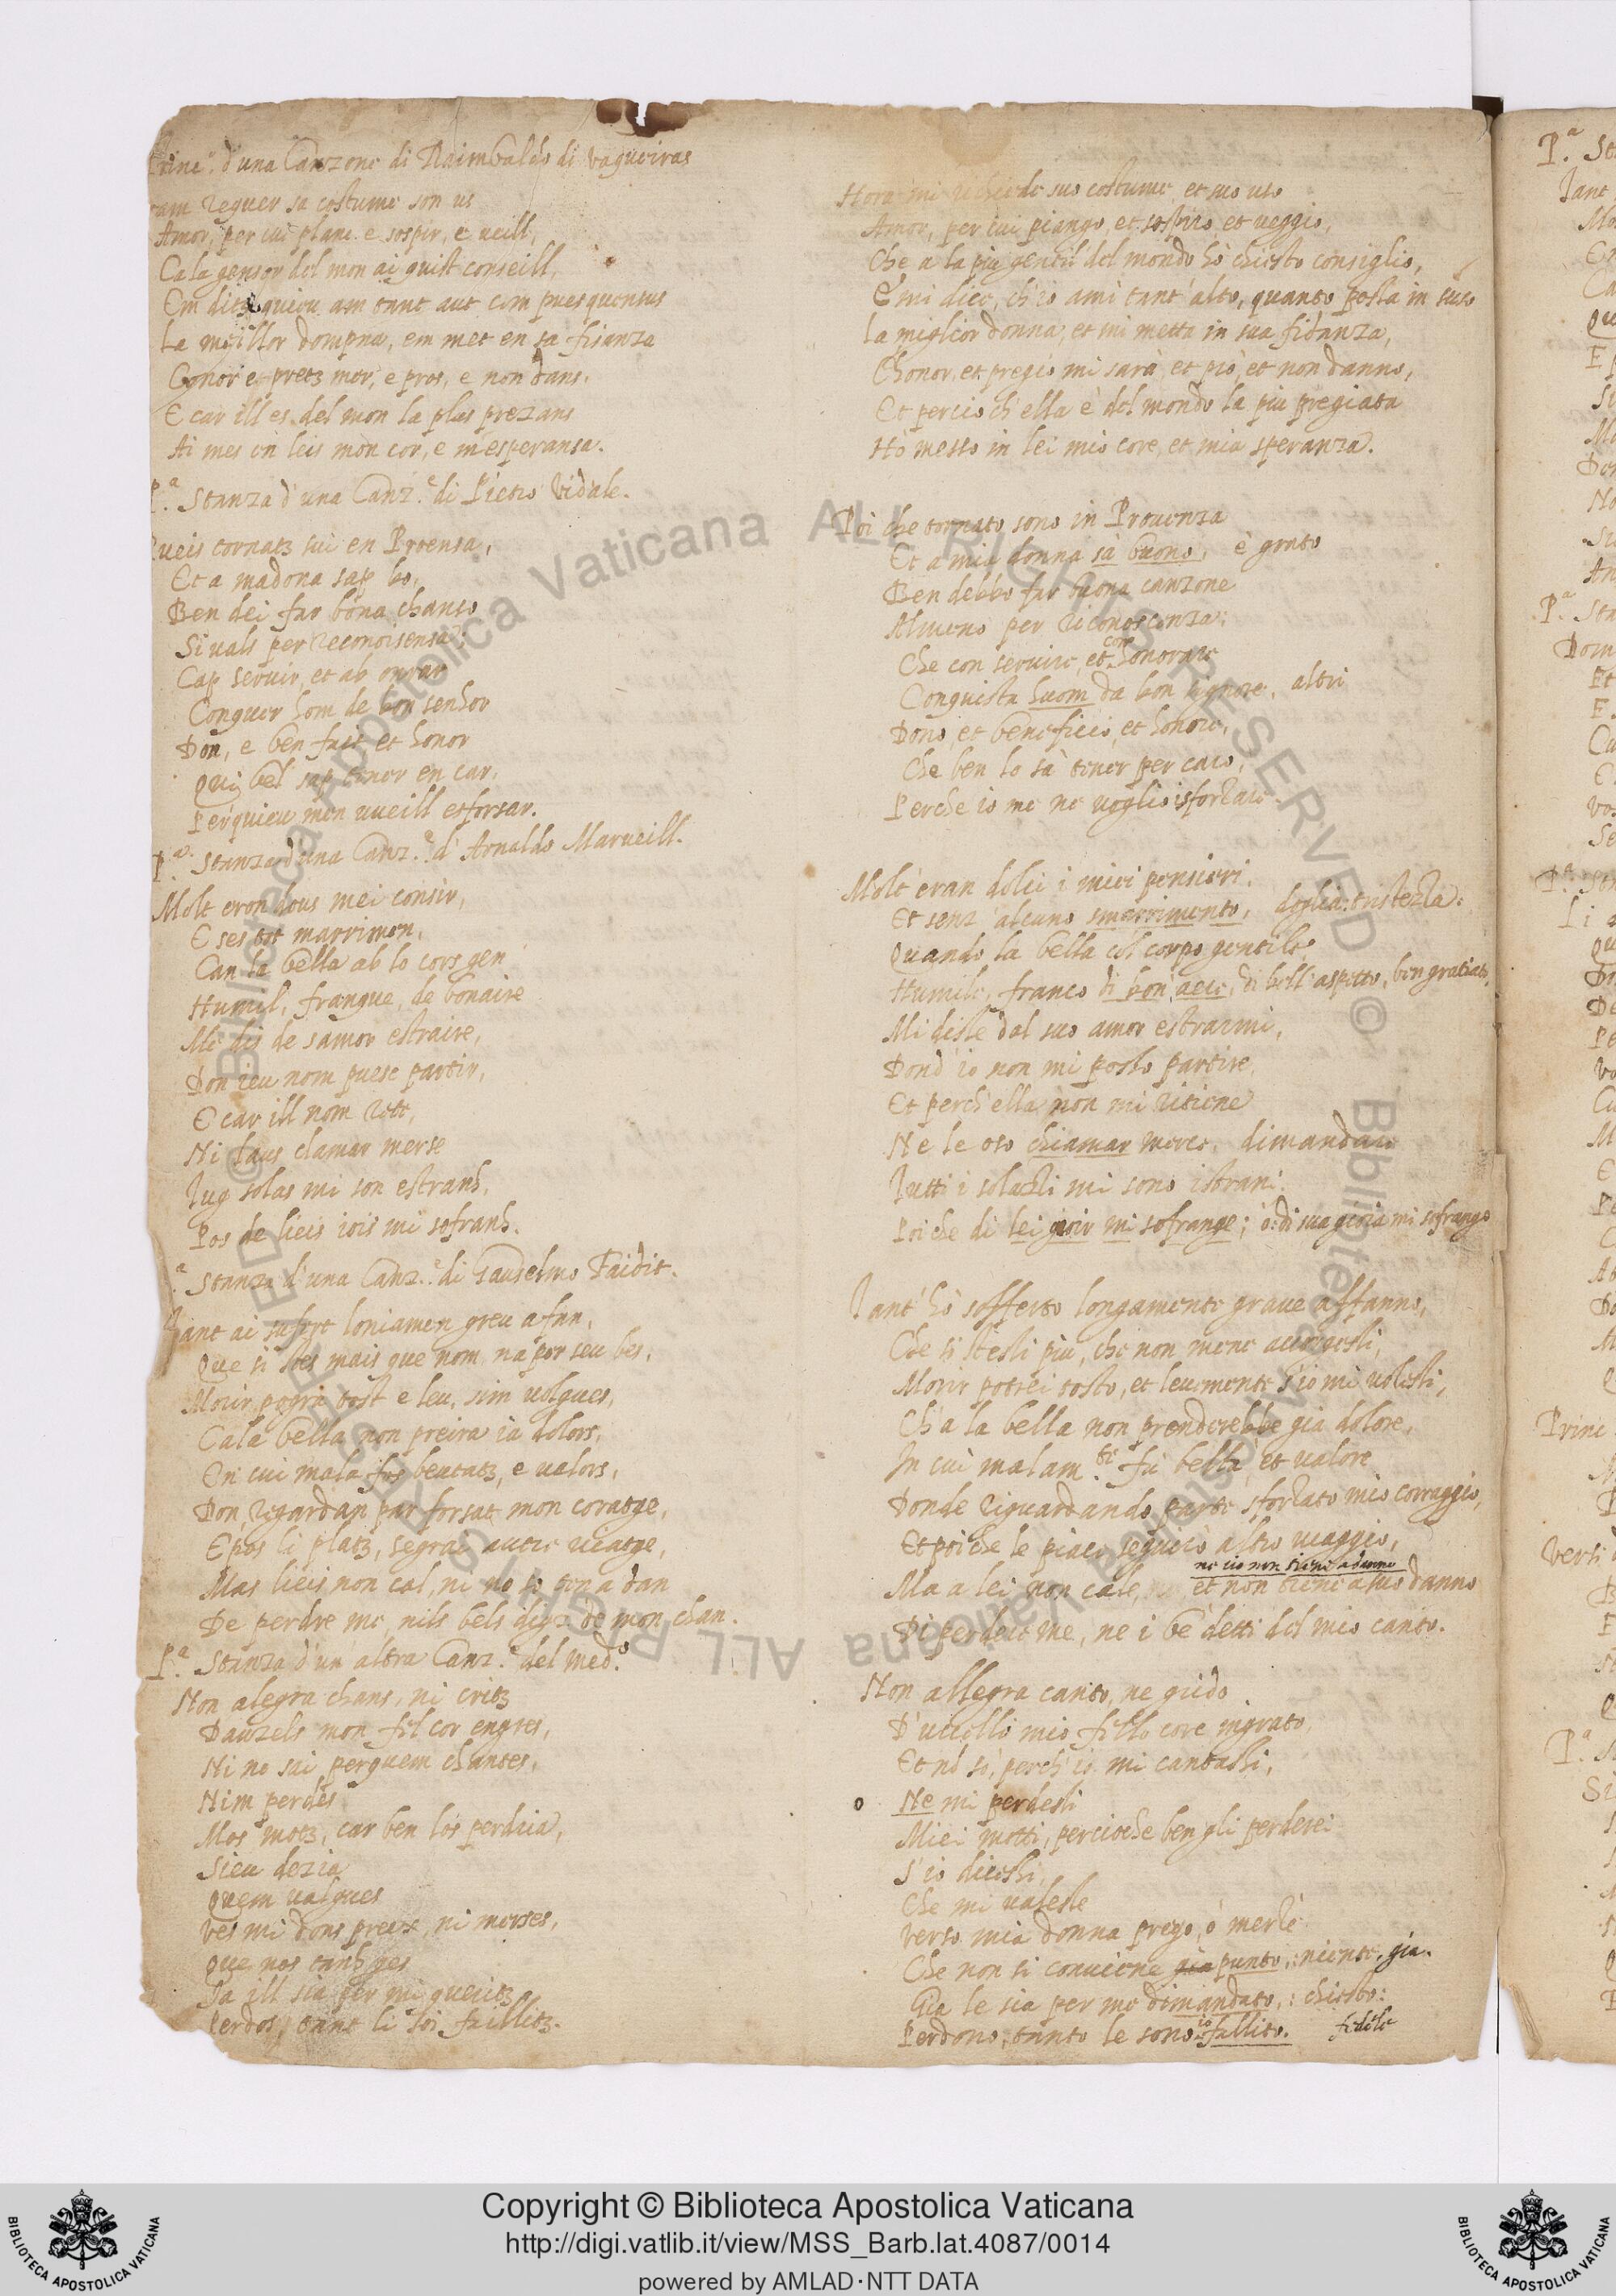 d'una Canzone di Raimbaldo di Vaqueiras
requer sa costume son us
Amor, per cui planc e sospir, e ueill,
Ca la gensor del mon ai quist conseill,
Em ditz quieu am tant aut com puesquensus
La meillor dompna, em met en sa fisanza
Conor e pretz mer, e pros, e non dans.
E car ill es del mon la plus prezans
Ai mes en leis mon cor, e m'esperansa.
P.a Stanza d'una Canz.e di Pietro Vidale.
tornatz sui en Proensa,
Et a madona sap bo,
Ben dei far bona chanso
Siuals per reconoisensa:
Cap seruir, et ab onrar
Conquer hom de bon senhor
Don, e ben fait, et honor
Qui bel sap tener en car.
Perquieu men uueill esforsar.
P.a Stanza d'una Canz.e d'Arnaldo Marueill.
Molt eron dous mei consir,
E ses tot marrimen,
Can la bella ab lo cors gen
Humil, franque, de bonaire
Mi dis de samor estraire,
Don ieu nom puesc partir,
E car ill nom rete,
Ni laus clamar merse
Tug solas mi son estranh,
Pos de lieis iois mi sofranh.
Stanza d'una Canz.e di Gauselmo Faidit.
Tant ai sufert loniamen greu afan,
Que si stes mais que nom naperseubes,
Morir pogra tost e leu, sim uolgues,
Cala bella non preira ia dolors,
En cui mala fos beutatz, e ualors,
Don, regardan par forsat mon coratge,
E pos li platz, segrai autre uiatge,
Mas lieis non cal, ni no so ten a dan
De perdre me, nils bels digz de mon chan.
P.a Stanza d'un altra Canz.e del med.o
Non alegra chans, ni critz
Dauzels mon fel cor engres,
Ni no sai perquem chantes,
Nim perdes
Mos motz, car ben los perdria,
Sieu dezia
Quem ualgues
Ves mi dons precx, ni merses,
Que nos tanh ges
Ja ill sia per mi queritz
Perdos, tant li soi faillitz.
Hora mi richiede suo costume, et suo uso
Amor, per cui piango, et sospiro, et ueggio,
Che a la più gentil del mondo hò chiesto consiglio,
E mi dice, ch'io ami tant'alto, quanto possa in suso
La miglior donna, et mi metta in sua fidanza,
Chonor, et pregio mi sarà, et prò, et non danno,
Et perciò ch'ella è del mondo la più pregiata
Hò messo in lei mio core, et mia speranza.
Poi che tornato sono in Prouenza
Et a mia donna sà buono, è grato
Ben debbo far buona canzone
Almeno per riconoscenza:
Che con seruire, et con honorare
Conquista huom da bon signore, altri
Dono, et beneficio, et honore,
Che ben lo sà tener per caro,
Perche io me ne uoglio isforzare
Molt'eran dolci i miei pensieri,
Et senz'alcuno smarrimento, doglia: tristezza:
Quando la bella col corpo gentile
Humile, franco di bon aere, di bell'aspetto, ben gratiato,
Mi disse dal suo amor estrarmi,
Dond'io non mi posso partire,
Et perch'ella non mi ritiene
Ne le oso chiamar merce, dimandare
Tutti i solazzi mi sono istrani:
Poi che di lei gioir mi sofrange; ò: di sua gioia mi sofrange
Tant'hò sofferto longamente graue affanno,
Che si stessi più, che non mene accorgessi,
Morir potrei tosto, et leuemente s'io mi uolessi,
Ch'a la bella non prenderebbe già dolore,
In cui malam.te fù bella, et ualore
Donde riguardando parte sforzato mio corraggio,
Et poi che le piace seguirò altro uiaggio,
ne cio non tiene a danno
Ma a lei non cale et non tiene a suo danno
Di perder me, ne i be detti del mio canto.
Non allegra canto, ne grido
D'uccello mio fello core ingrato,
Et nò sò, perch'io mi cantassi,
Ne mi perdessi
Miei motti, percioche ben gli perderei
S'io dicessi,
Che mi ualesse
Verso mia donna prego, ò merzè
Che non si conuiene già punto,: niente, gia.
Gia le sia per me dimandato,: chiesto:
Perdono, tanto le sono io fallito. fedele
Copyright © Biblioteca Apostolica Vaticana
http://digi.vatlib.it/view/MSS_Barb.lat.4087/0014
powered by AMLAD·NTT DATA